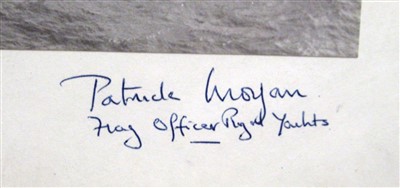 Patrick Morgan
Flag Officer Royal Yachts